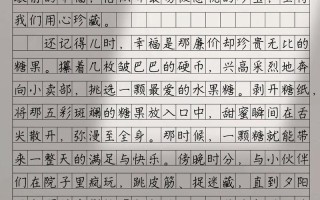 我们用心珍藏。
还记得儿时，幸福是那廉价却珍贵无比的
糖果。攥着几枚皱巴巴的硬币，兴高采烈地奔
向小卖部，挑选一颗最爱的水果糖。剥开糖纸，
将那五彩斑斓的糖果放入口中，甜蜜瞬间在舌
尖散开，弥漫至全身。那时候，一颗糖就能带
来一整天的满足与快乐。傍晚时分，与小伙伴
们在院子里疯玩，跳皮筋、捉迷藏，直到夕阳